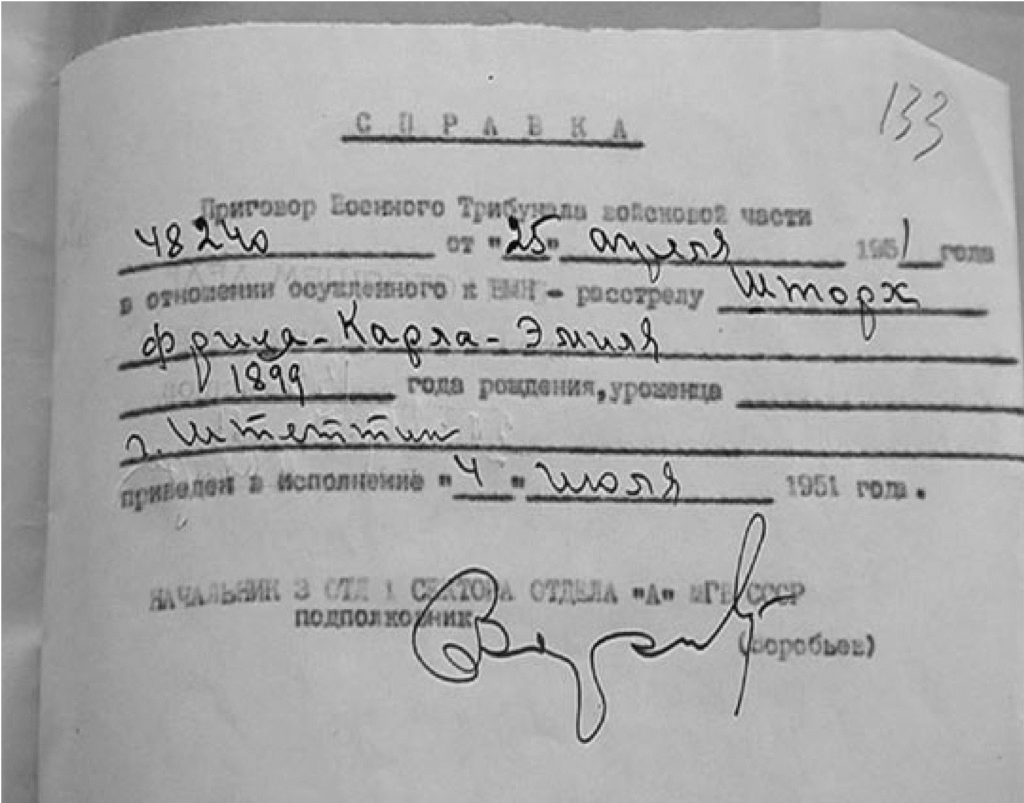 133
СПРАВКА
Приговор Военного Трибунала войсковой части
48240 от "25" апреля 1951 года
в отношении осужденного к ВМН - расстрелу Шторх
Фрица-Карла-Эмиля
1899 года рождения, уроженца
г. Штеттин
приведен в исполнение "4" июля 1951 года.
НАЧАЛЬНИК 3 ОТД 1 СЕКТОРА ОТДЕЛА "А" МГБ СССР
подполковник
(Воробьев)